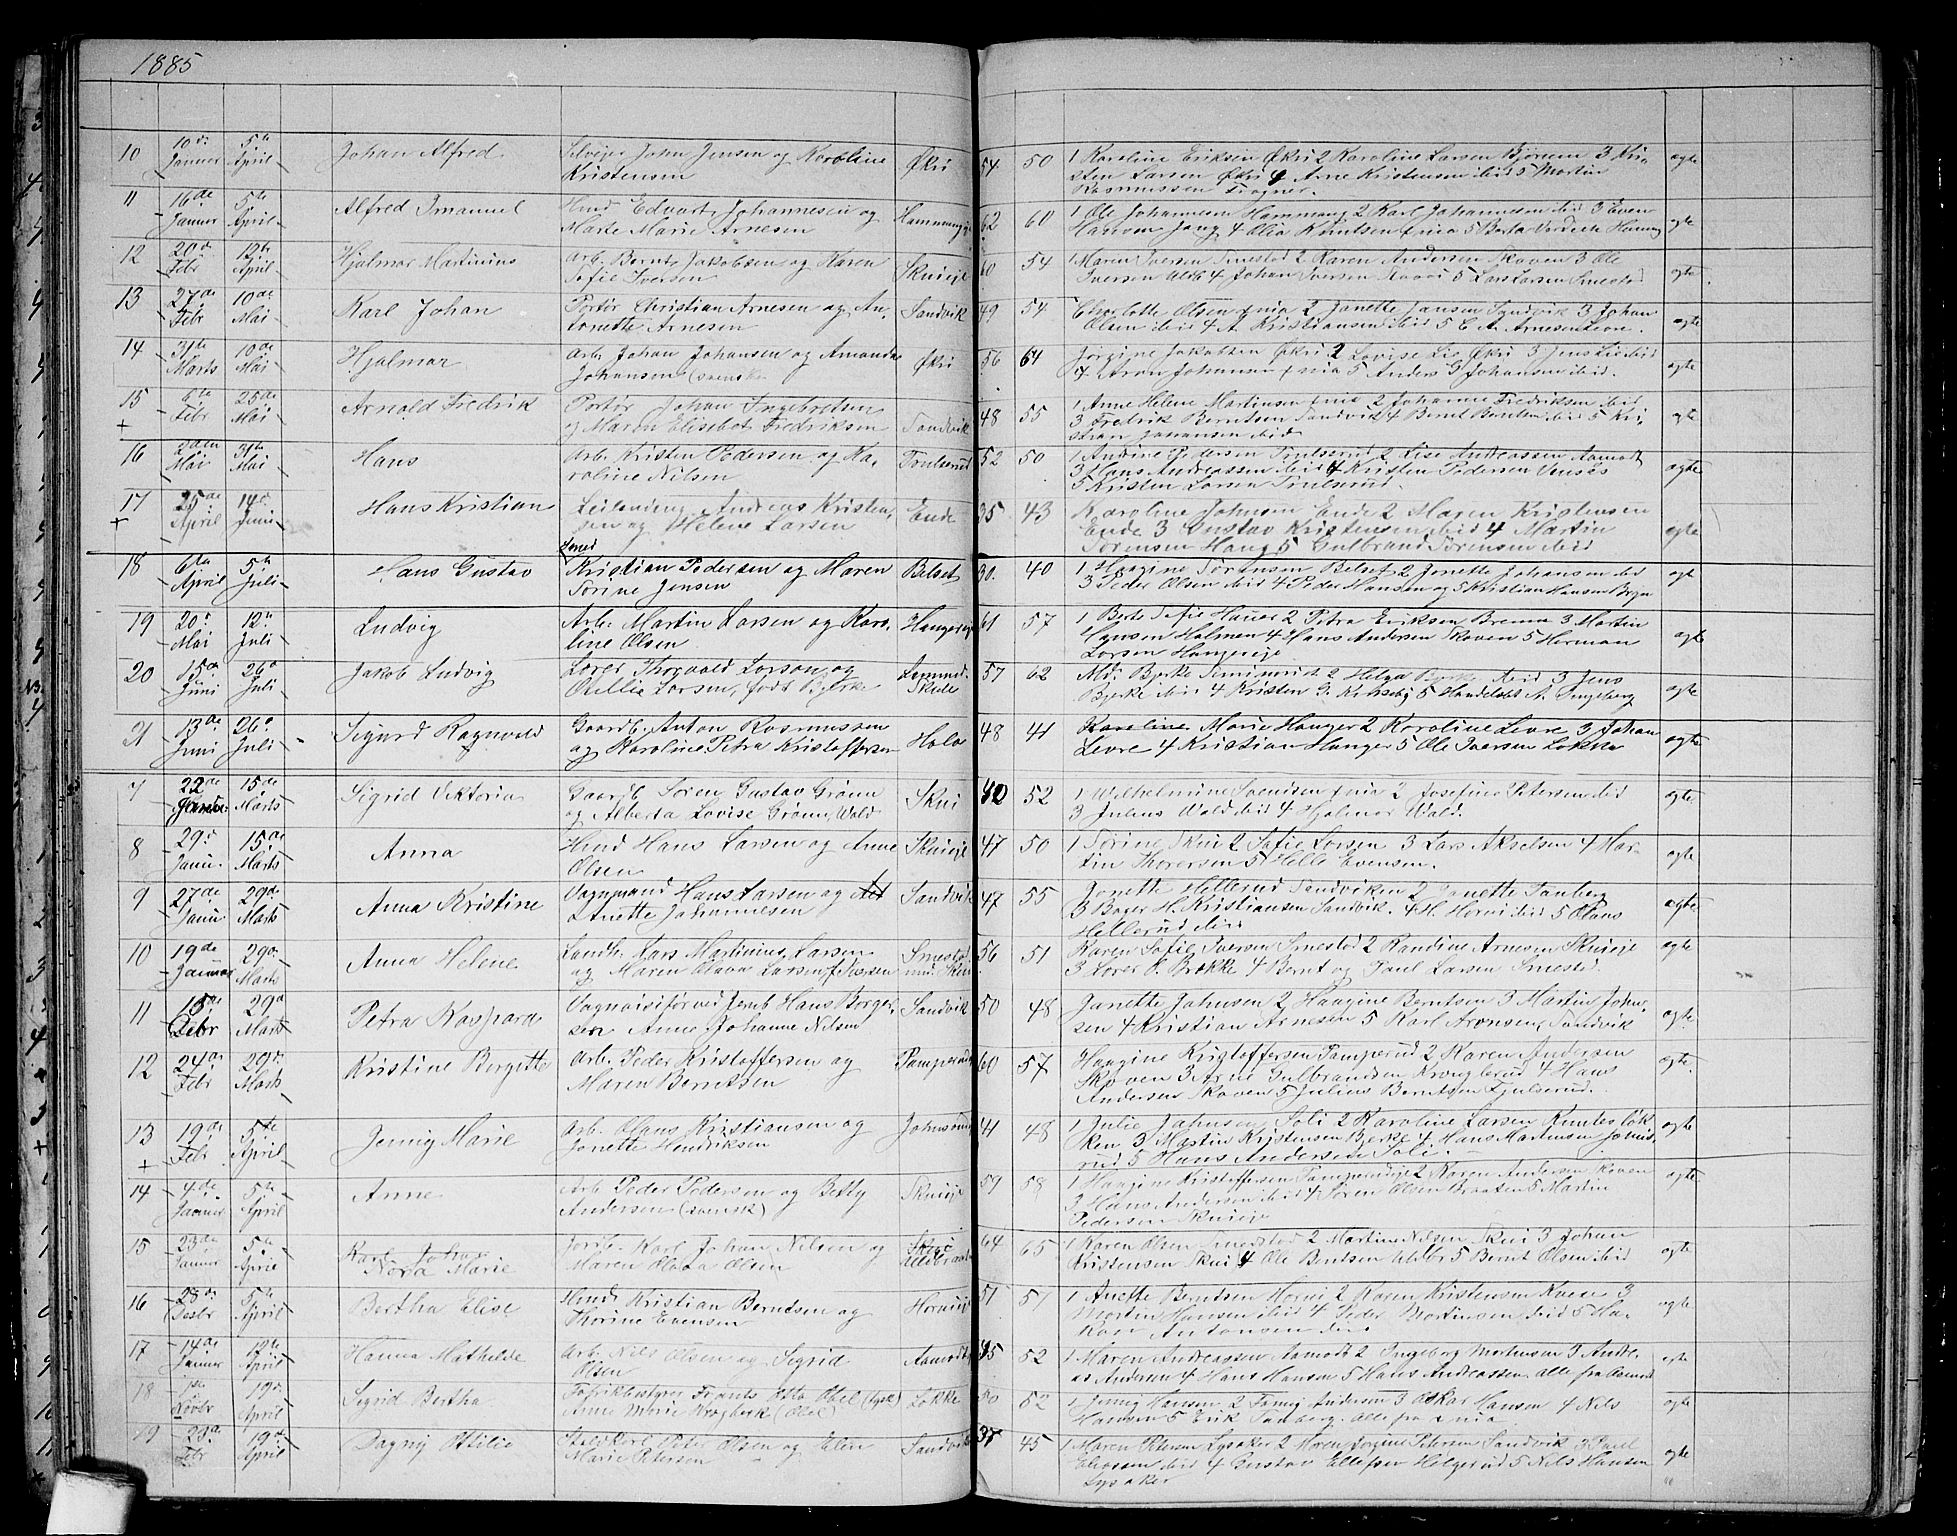 1885
10 10de Januar 5te April Johan Alfred Selveier John Jensen og Karoline Kristensen Økri 54 50 1 Karoline Eriksen Økri 2 Karoline Larsen Bjørnem 3 Kri-
sten Larsen Økri 4 Arne Kristensen ibid 5 Martin
Rasmussen Fragner. ægte
11 16de Januar 5te April Alfred Imanuel Hmd Edvart Johannesen og Marte Marie Arnesen Hammang 62 60 1 Ole Johannesen Hammang 2 Karl Johannesen ibid 3 Even
Hansen Jong 4 Olia Knutsen 5 Berta ægte
12 20de Febr 12te April Hjalmar Martinius Arb. Bernt Jakobsen og Karen Sofie Iversen Skuieje 60 54 1 Maren Iversen Smestad 2 Karen Andersen Skoven 3 Ole
Iversen 4 Johan Iversen 5 Lars Larsen Smestad ægte
13 27de Febr 10de Mai Karl Johan Portør Christian Arnesen og An-
tonette Arnesen Sandvik 49 54 Charlotte Olsen 2 Janette Jansen Sandvik 3 Johan
Olsen ibid 4 A. Kristiansen ibid 5 C. A. Arnesen ægte
14 31te Marts 10de Mai Hjalmar Arb. Johan Johansen og Amanda Johansen (svenske Økri 56 64 Jørgine Jakobsen Økri 2 Lovise Lie Økri 3 Jens Lie ibid
4 Aron Johansen 5 Anders G Johansen ibid. ægte
15 + 6te Febr 25de Mai Arnold Fredrik Portør Johan Ingebretsen
og Maren Elisebet Fredriksen Sandvik 48 55 1 Anne Helene Martinsen 2 Johanne Fredriksen ibid
3 Fredrik Berntsen Sandvik 4 Bernt Bentsen ibid 5 Kri-
stian Johansen ibid ægte
16 2den Mai 31te Mai Hans Arb. Kristen Pedersen og Ka-
roline Nilsen Trulserud 52 50 1 Andine Pedersen Trulserud 2 Lise Andreassen Aamodt
3 Hans Andreassen ibid 4 Kristen Pedersen
5 Kristen Larsen Trulserud. ægte
17 + 25de April 14de Juni Hans Kristian Leilending Andreas Kristen-
sen og Helene Larsen Ende 35 43 Karoline Johnsen Ende 2 Maren Kristensen
Ende 3 Gustav Kristensen ibid 4 Martin
Sørensen Haug 5 Gulbrand Sørensen ibid ægte
18 6de April 5te Juli Hans Gustav Kristian Pedersen og Maren
Torine Jensen Belset 30. 40 1 Haagine Sørensen Belset 2 Jonette Johansen ibid
3 Peder Olsen ibid 4 Peder Hansen og 5 Kristian Hansen ægte
19 20de Mai 12te Juli Ludvig Arb. Martin Larsen og Karo-
line Olsen Hangereje 61 57 1 Berte Sofie Hauer 2 Petra Eriksen Brenna 3 Martin
Hansen Holmen 4 Hans Andersen Skoven 5 Herman
Larsen Hangereje ægte
20 15de Juni 26de Juli Jakob Ludvig Lærer Thorvald Larson og
Millie Larsen, født Bjerke Lommed-
Skole 57 62 Md. Bjerke Seminarist 2 Helga Bjerke ibid 3 Jens
Bjerke ibid 4 Kristen G. 5 Handelsbt. A. Ingeberg ægte
21 13de Juni 26de Juli Sigurd Ragnvald Gaardb. Anton Rasmussen
og Karoline Petra Kristoffersen Holo 48 41 Karoline Marie Hanger 2 Karoline Levre 3 Johan
Levre 4 Kristian Hanger 5 Ole Iversen Løkka ægte
7 22de Januar 15de Marts Sigrid Viktoria Gaardb. Søren Gustav Grønn
og Alberta Lovise Grønn, Wald Skui 40 52 1 Wilhelmine Svendsen 2 Josefine Petersen ibid
3 Julius Wald ibid 4 Hjalmar Wald. ægte
8 29de Janu. 15de Marts Anna Hmd Hans Larsen og Anne
Olsen Skuieje 47 50 1 Torine Skui 2 Sofie Larsen 3 Lars Akselsen 4 Mar-
tin Thoresen 5 Helle Evensen. ægte
9 27de Janu 29de Marts Anna Kristine Vognmand Hans Larsen og
Anette Johannesen Sandvik 47 55 Jonette Hellerud Sandviken 2 Janette Tanberg
3 Bager H. Kristiansen Sandvik. 4 H. Horni ibid 5 Olaus
Hellerud ibid ægte
10 19de Januar 29de Marts Anna Helene Landh. Lars Martinius Larsen
og Maren Olava Larsen f. Iversen Smestad
und. Skui 56 51 Karen Sofie Iversen Smestad 2 Randine Arnesen Skuieje
3 Lærer S. Brække 4 Bernt og Paul Larsen Smestad. ægte
11 15de Febr 29de Marts Petra Kaspara Vognvisitør ved Jernb Hans Borger-
sen Anne Johanne Nilsen Sandvik 50 48 Janette Johnsen 2 Haagine Berntsen 3 Martin Johan-
sen 4 Kristian Arnesen 5 Karl Aronsen, Sandvik ægte
12 24de Febr 29de Marts Kristine Bergitte Arb. Peder Kristoffersen og
Maren Berntsen Pamperud 60 57 Haagine Kristoffersen Pamperud 2 Karen Andersen
Skoven 3 Arne Gulbrandsen Kronglerud 4 Hans
Andersen Skoven 5 Julius Berntsen Fjulserud. ægte.
13 + 19de Febr 5te April Jenny Marie Arb. Olaus Kristiansen og
Jonette Hendriksen Johnsrud 41 48 1 Julie Johnsen, Toli 2 Karoline Larsen Kundesløk-
ken 3 Martin Kristensen Bjerke 4 Hans Martinsen Johns-
rud 5 Hans Andersen Toli. ægte
14 4de Januar 5te April Anne Arb. Peder Pedersen og Betty
Andersen (svensk) Skuieje 59 58 1 Haagine Kristoffersen Pamperudeje 2 Karen Andersen Skoven
3 Hans Andersen ibid 4 Søren Olsen Braaten 5 Martin
Pedersen Skuieje ægte
15 23de Januar 5te April Karl Johan
Nora Marie Jordb. Karl Johan Nilsen og
Maren Olava Olsen Skui 64 65 1 Karen Olsen Smedstad 2 Martine Nilsen Skui 3 Johan
Kristensen Skui 4 Ole Berntsen 5 Bernt Olsen ibid ægte
16 28de Desbr 5te April Bertha Elise Hmd. Kristian Berntsen og
Thorine Evensen Hornieje 51 51 1 Anette Berntsen Horni 2 Karen Kristensen 3
Martin Hansen ibid 4 Peder Mortinsen ibid 5 Ha-
kon Antonsen ibid ægte
17 14de Januar 12te April Hanna Mathilde Arb. Nils Olsen og Sigrid
Olsen Aamodt 45 52 1 Maren Andreassen Aamodt 2 Ingeborg Mortensen 3 Andre-
as Andersen 4 Hans Hansen 5 Hans Andreassen alle fra Aamodt ægte
18 1ste Novbr 19de April Sigrid Bertha. Fabrikbestyrer Frants Otto Obel (tysk)
Anne Marie Kragberk (Obel) Løkke 50 52 1 Jenny Hansen 2 Fanny Andersen 3 Oskar Hansen 4 Nils
Hansen 5 Erik Tanberg. alle fra ægte
19 23de Febr 19de April Dagny Otilie Staldkarl Peter Olsen og Elen
Marie Petersen Sandvik 37 45 1 Maren Petersen Lysaker 2 Maren Jorgine Petersen Sandvik 3 Paul
Eliassen ibid 4 Gustav Ellefsen Helgerud 5 Nils Hansen
Lysaker ægte